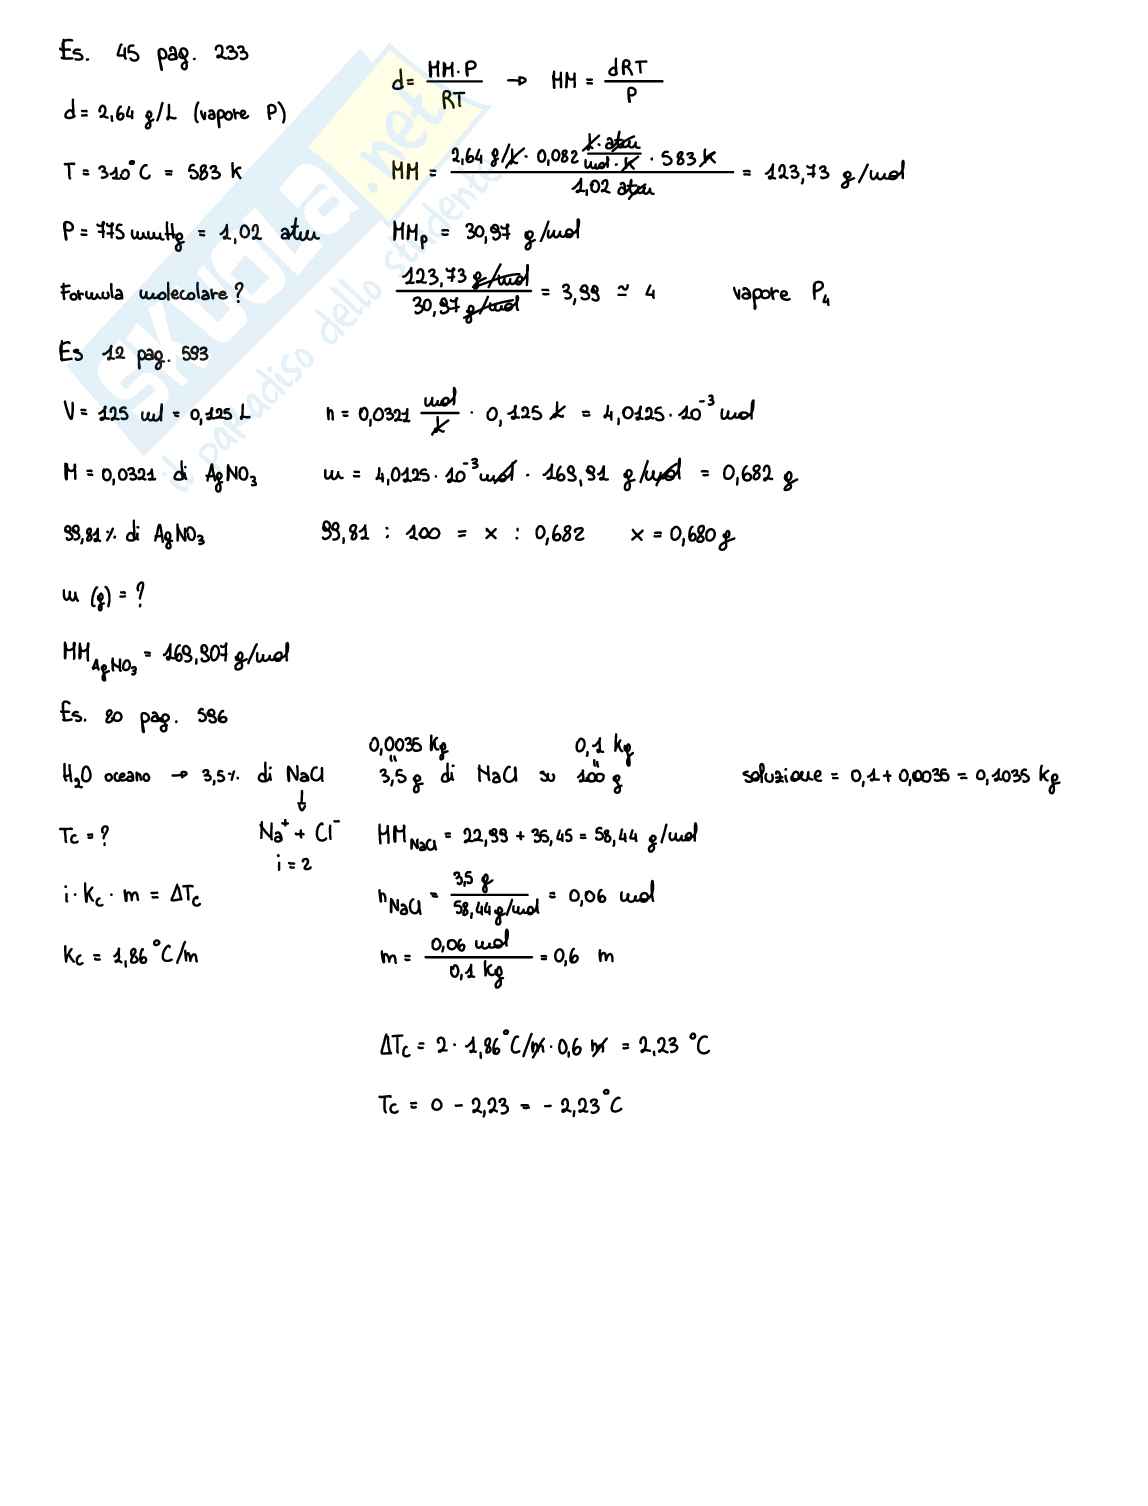 Es. 45 pag. 233
d = 2,64 g/L (vapore P)
T = 310°C = 583 k
P = 775 mmHg = 1,02 atm
Formula molecolare?
d = MM·P / RT → MM = dRT / P
MM = 2,64 g/L · 0,082 L·atm / mol·K · 583 K / 1,02 atm = 123,73 g/mol
MMP = 30,97 g/mol
123,73 g/mol / 30,97 g/mol = 3,99 ≃ 4 vapore P₄
Es 12 pag. 593
V = 125 ml = 0,125 L
n = 0,0321 mol/L · 0,125 L = 4,0125·10⁻³ mol
M = 0,0321 di AgNO₃
m = 4,0125·10⁻³ mol · 169,91 g/mol = 0,682 g
99,81% di AgNO₃
99,81 : 100 = x : 0,682 x = 0,680 g
m (g) = ?
MM AgNO₃ = 169,907 g/mol
Es. 80 pag. 596
0,0035 Kg 0,1 kg
H₂O oceano → 3,5% di NaCl
3,5 g di NaCl su 100 g
soluzione = 0,1 + 0,0035 = 0,1035 kg
↓
Na⁺ + Cl⁻
i = 2
Tc = ?
MM NaCl = 22,99 + 35,45 = 58,44 g/mol
i · Kc · m = ΔTc
n NaCl = 3,5 g / 58,44 g/mol = 0,06 mol
Kc = 1,86 °C/m
m = 0,06 mol / 0,1 kg = 0,6 m
ΔTc = 2 · 1,86 °C/m · 0,6 m = 2,23 °C
Tc = 0 - 2,23 = - 2,23 °C
SKUOLA.net
il paradiso dello studente